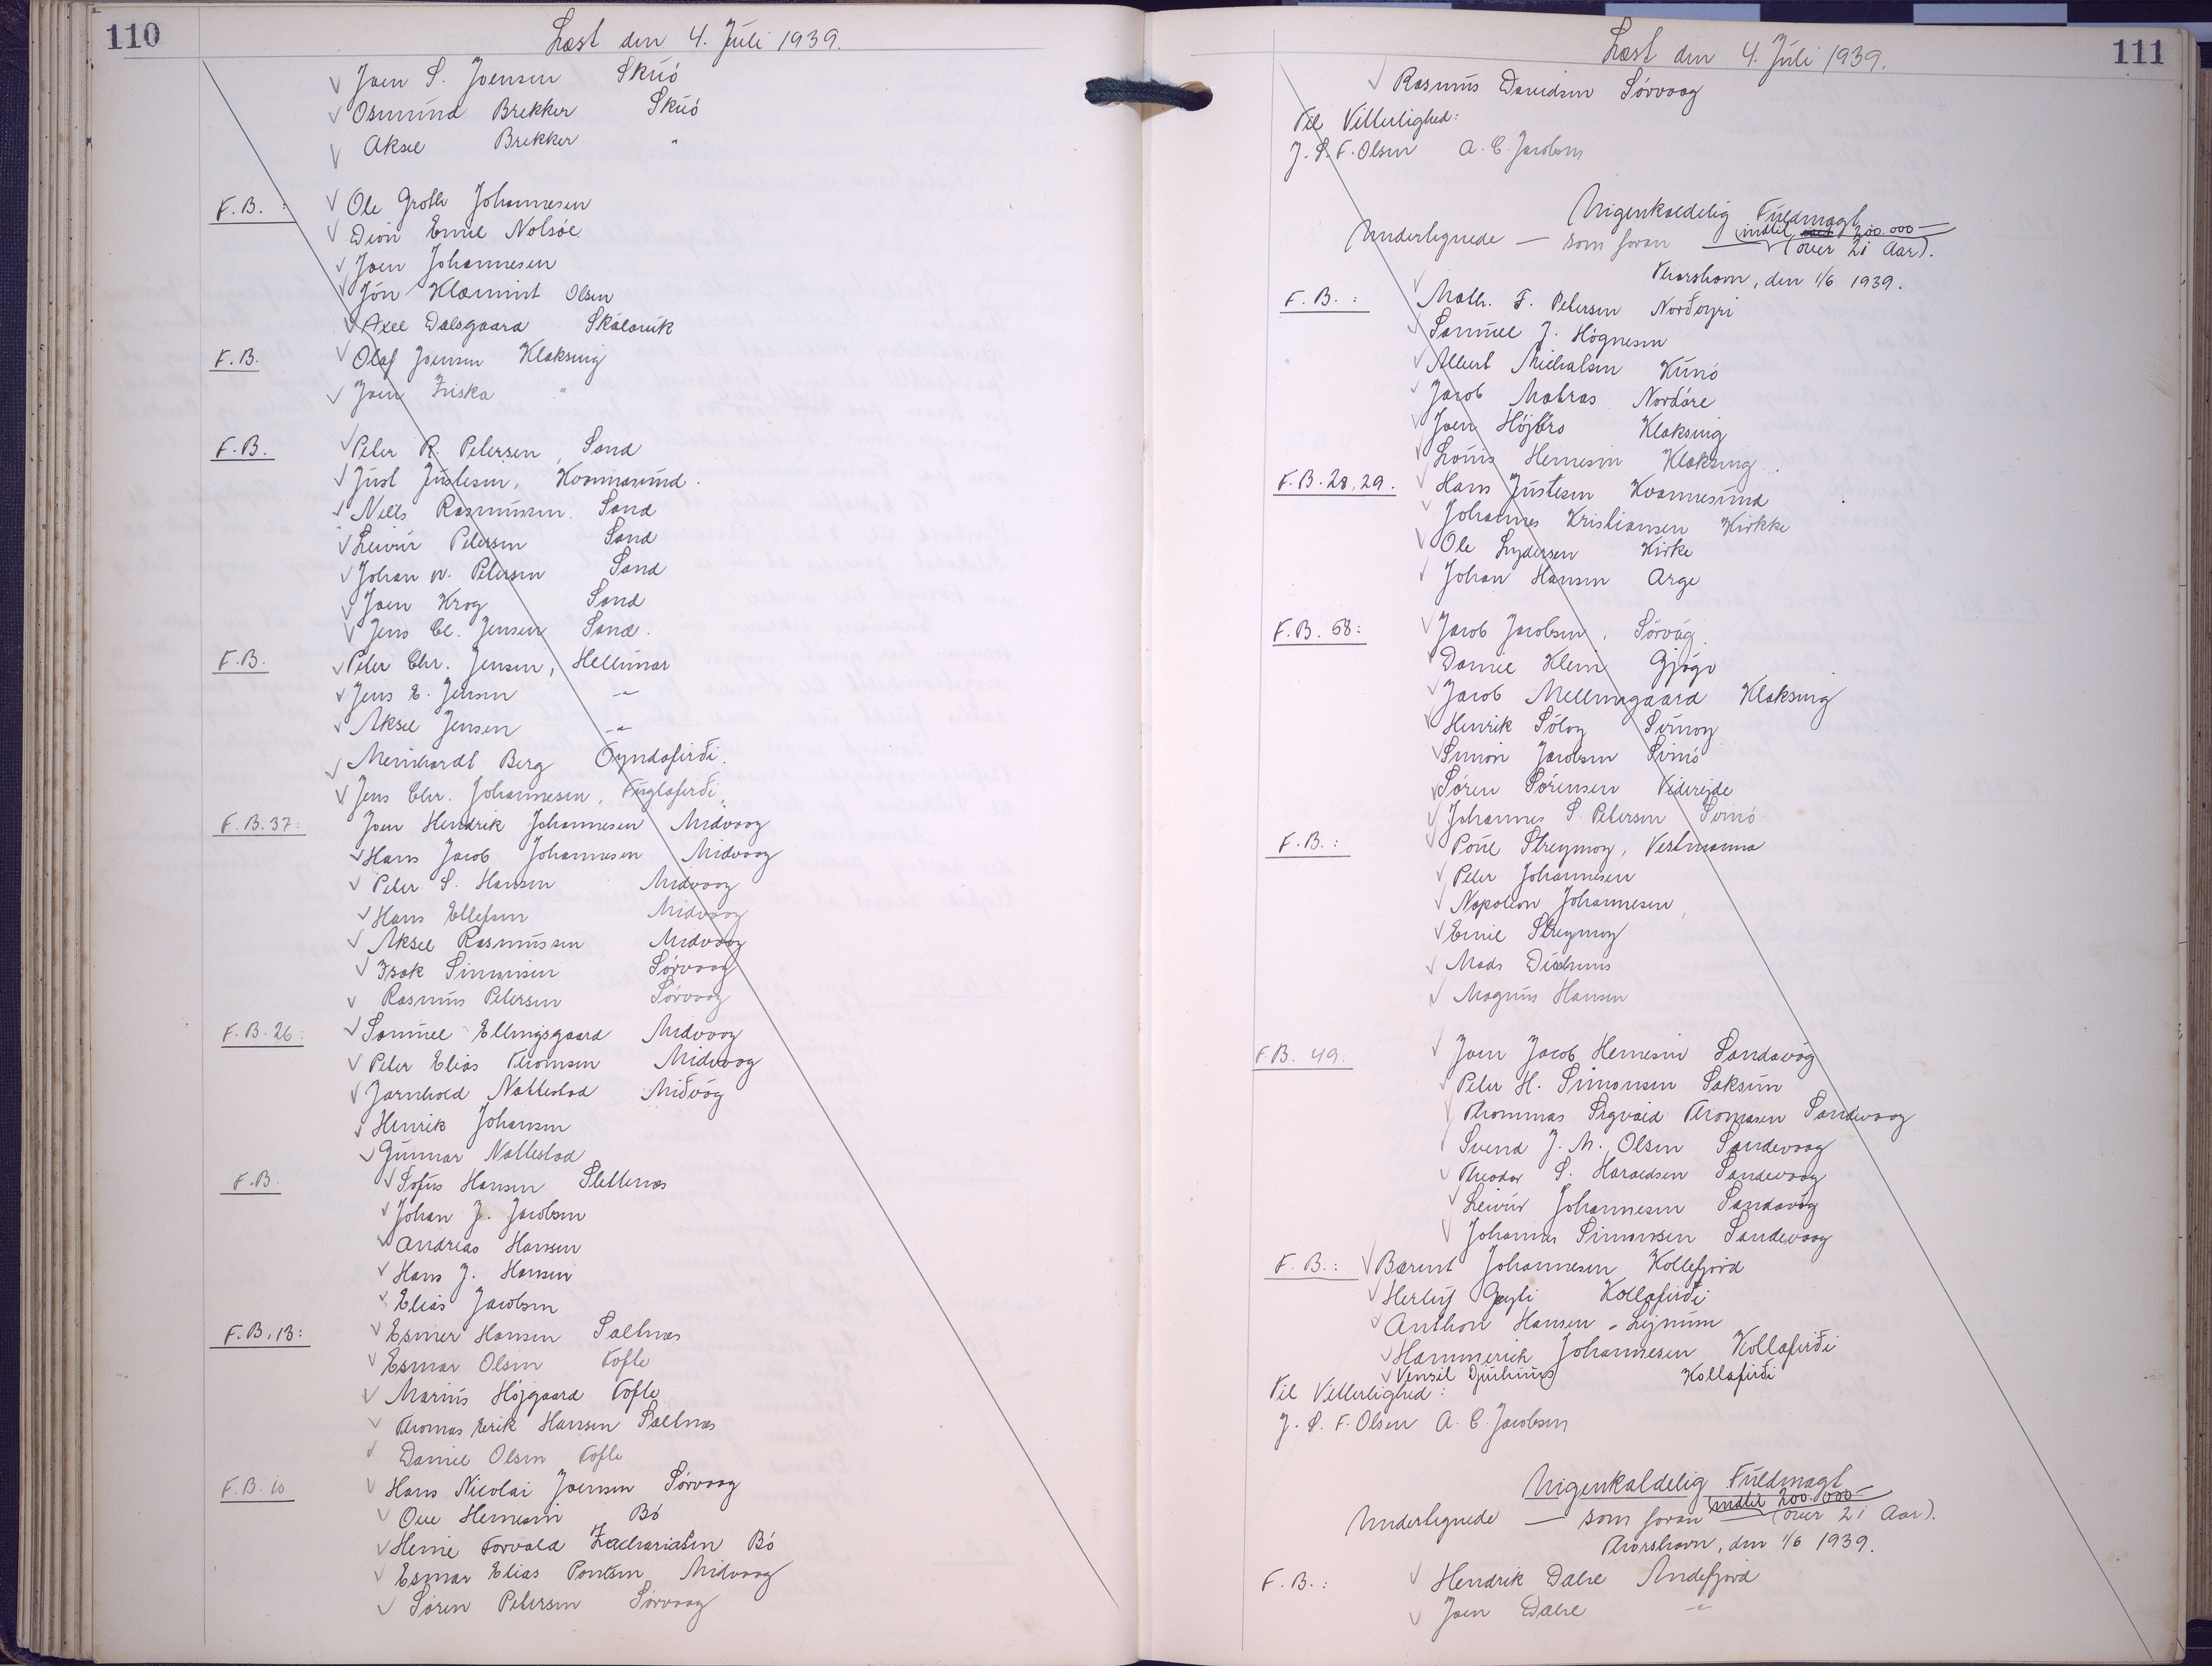 110
Læst den 4. Juli 1939.
Joen S. Joensen Skúó
Osmund Brekker Skúó
Aksel Brekker "
F.B. : Ole Groth Johannesen
Dion Emil Nolsøe
Joen Johannesen
Jón Klæmint Olsen
Axel Dalsgaard Skálavík
F.B. Olaf Joensen Klaksvig
Joen Friska "
F.B. Peter R. Petersen, Sand
Just Justesen, Kvannasund.
Niels Rasmussen. Sand
Leivur Petersen Sand
Johan W. Petersen Sand
Joen Krog Sand
Jens Cl. Jensen Sand.
F.B. Peter Chr. Jensen, Hellunar
Jens E. Jensen -"-
Aksel Jensen -"-
Meinhardt Berg Oyndafirði.
Jens Chr. Johannesen, Fuglafirði,
F.B.37: Joen Hendrik Johannesen Midvaag
Hans Jacob Johannesen Midvaag
Peter S. Hansen Midvaag
Hans Ellefsen Midvaag
Aksel Rasmussen Midvaag
Isak Simonsen Sørvaag
Rasmus Petersen Sørvaag
F.B.26: Samuel Ellingsgaard Midvaag
Peter Elias Thomsen Midvaag
Jarnhold Nattestad Miðvág
Henrik Johansen
Gunnar Nattestad
F.B. Sofus Hansen Slettenes
Johan J. Jacobsen
Andreas Hansen
Hans J. Hansen
Elias Jacobsen
F.B.13: Esmer Hansen Saltnes
Esmar Olsen Tofte
Marius Højgaard Tofte
Thomas Erik Hansen Saltnes
Daniel Olsen Tofte
F.B. 10 Hans Nicolai Joensen Sørvaag
Ove Hernesin Bø
Heine Torvald Zachariasen Bø
Esmar Elias Poulsen Midvaag
Søren Petersen Sørvaag
111
Læst den 4. Juli 1939.
Rasmus Davidsen Sørvaag
Til Vitterlighed:
J. S. F. Olsen A. C. Jacobsen
Uigenkaldelig Fuldmagt
indtil 200.000 —
Undertegnede — som foran — (over 21 Aar).
Thorshavn, den 1/6 1939.
F. B. : Math. F. Petersen Norðoyri
Samuel J. Høgnesen
Albert Michalsen Kunø
Jacob Matras Nordøre
Joen Højbro Klaksvig
Louis Hernesin Klaksvig.
F.B. 28, 29. Hans Justesen Kvannesund
Johannes Kristiansen Kirkke
Ole Lydersen Kirke
Johan Hansen Arge
F.B. 58: Jacob Jacobsen, Sørvág.
Daniel Klein Gjógv
Jacob Mellemgaard Klaksvig
Henrik Sóloy Svinoy
Simon Jacobsen Svinø
Søren Sørensen Videreide
Johannes S. Petersen Svinø
F. B. : Poul Streymoy, Vestmanna
Peter Johannesen
Napoleon Johannesen,
Emil Streymoy
Mads
Magnus Hansen
F.B. 49: Joen Jacob Hernesin Sandavág
Peter H. Simonsen Saksun
Thommas Sigvald Thomasen Sandevaag
Svend J. M. Olsen Sandevaag
Theodor S. Haraldsen Sandevaag
Leivur Johannesen Sandavág
Johannes Simonsen Sandevaag
F. B. : Barent Johannesen Kollefjord
Herluf Gayli Kollafirði
Anthon Hansen - Leynum
Hammerich Johannesen Kollafirði
Vensil Djurhuus Kollafirði
Til Vitterlighed:
J. S. F. Olsen A. C. Jacobsen
Uigenkaldelig Fuldmagt
indtil 200.000 —
Undertegnede — som foran — (over 21 Aar).
Thorshavn, den 1/6 1939.
F. B. : Hendrik Dahl Andefjord
Joen Dahl -"-